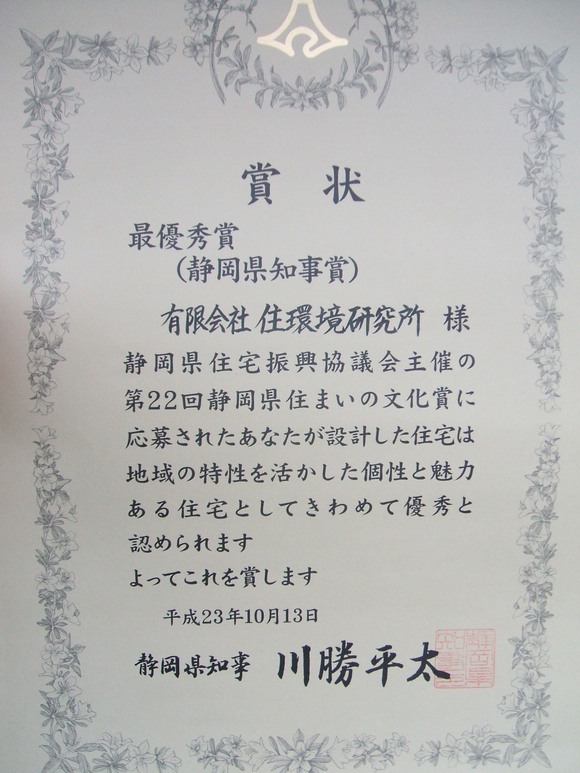 賞 状
最優秀賞
(静岡県知事賞)
有限会社 住環境研究所 様
静岡県住宅振興協議会主催の
第22回静岡県住まいの文化賞に
応募されたあなたが設計した住宅は
地域の特性を活かした個性と魅力
ある住宅としてきわめて優秀と
認められます
よってこれを賞します
平成23年10月13日
静岡県知事 川勝平太